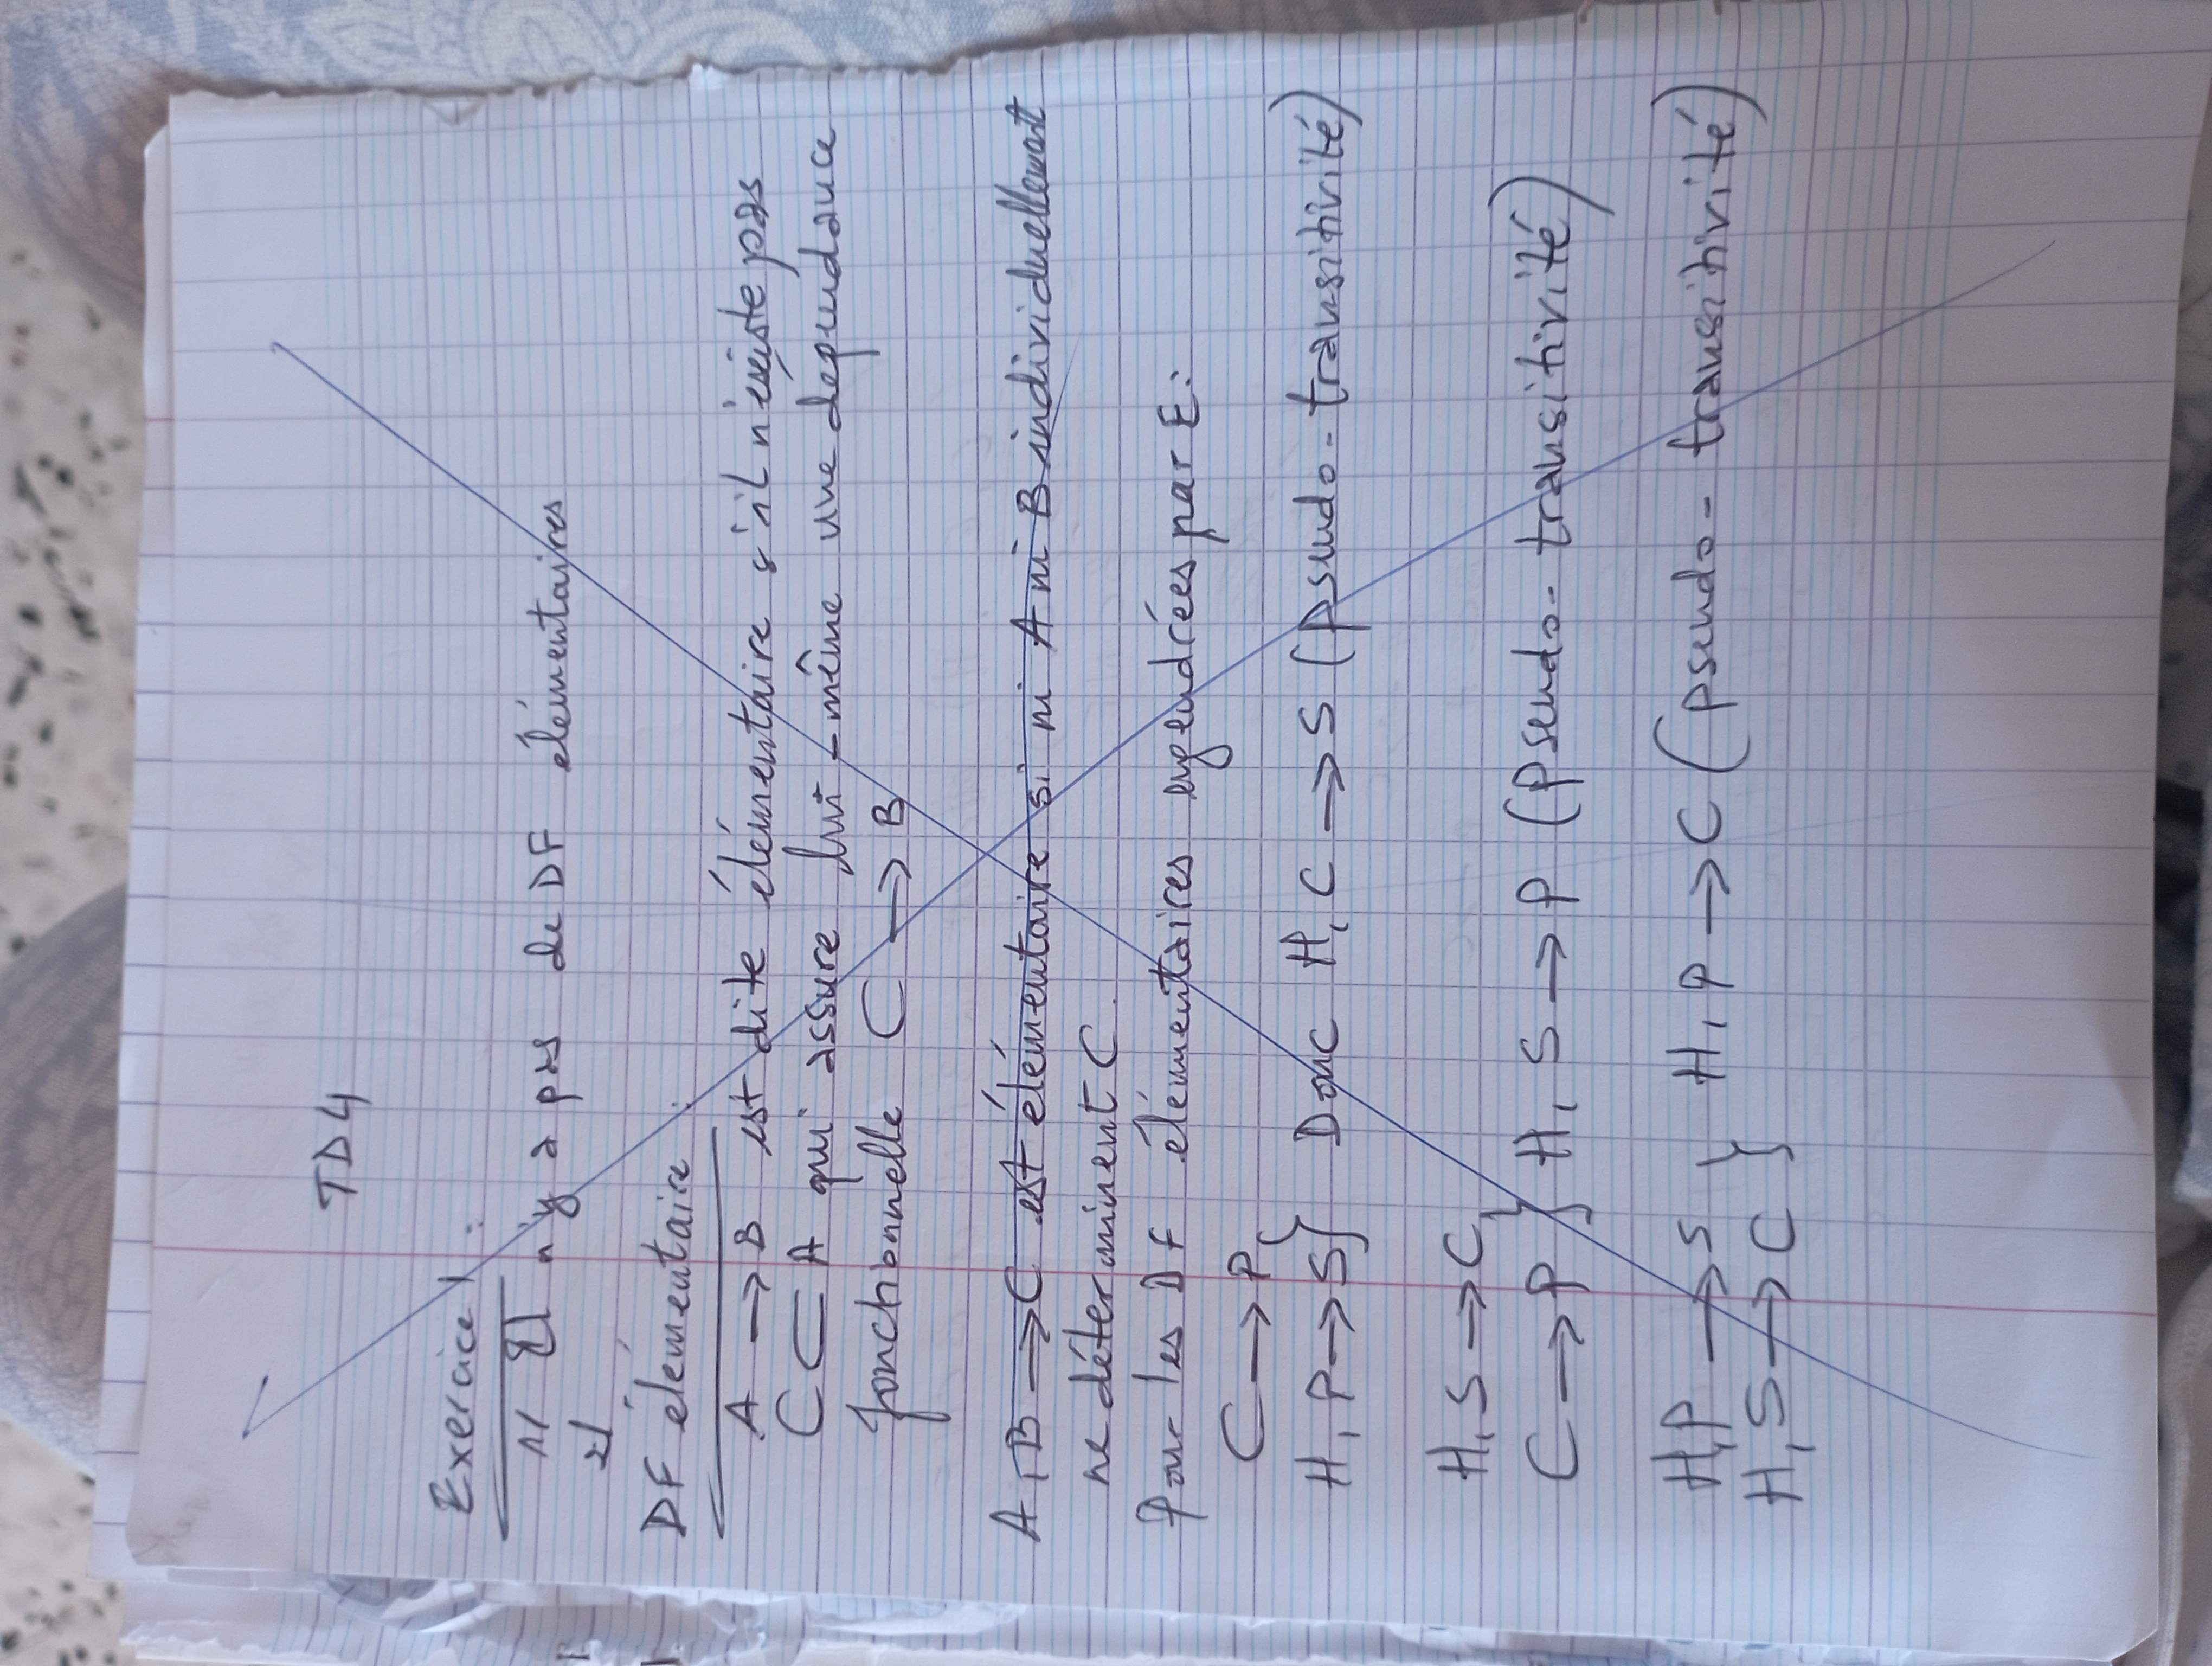 TD4
Exercice 1 :
1/ Il n'y a pas de DF élémentaires
2/
DF élémentaire :
A → B est dite élémentaire s'il n'existe pas
C ⊂ A qui assure lui-même une dépendance
fonctionnelle C → B
A, B → C est élémentaire si ni A ni B individuellement
ne déterminent C.
Donc les DF élémentaires engendrées par E :
C → P
H, P → S } Donc H, C → S (Pseudo-transitivité)
H, S → C
C → P } H, S → P (Pseudo-transitivité)
H, P → S } H, P → C (Pseudo-transitivité)
H, S → C